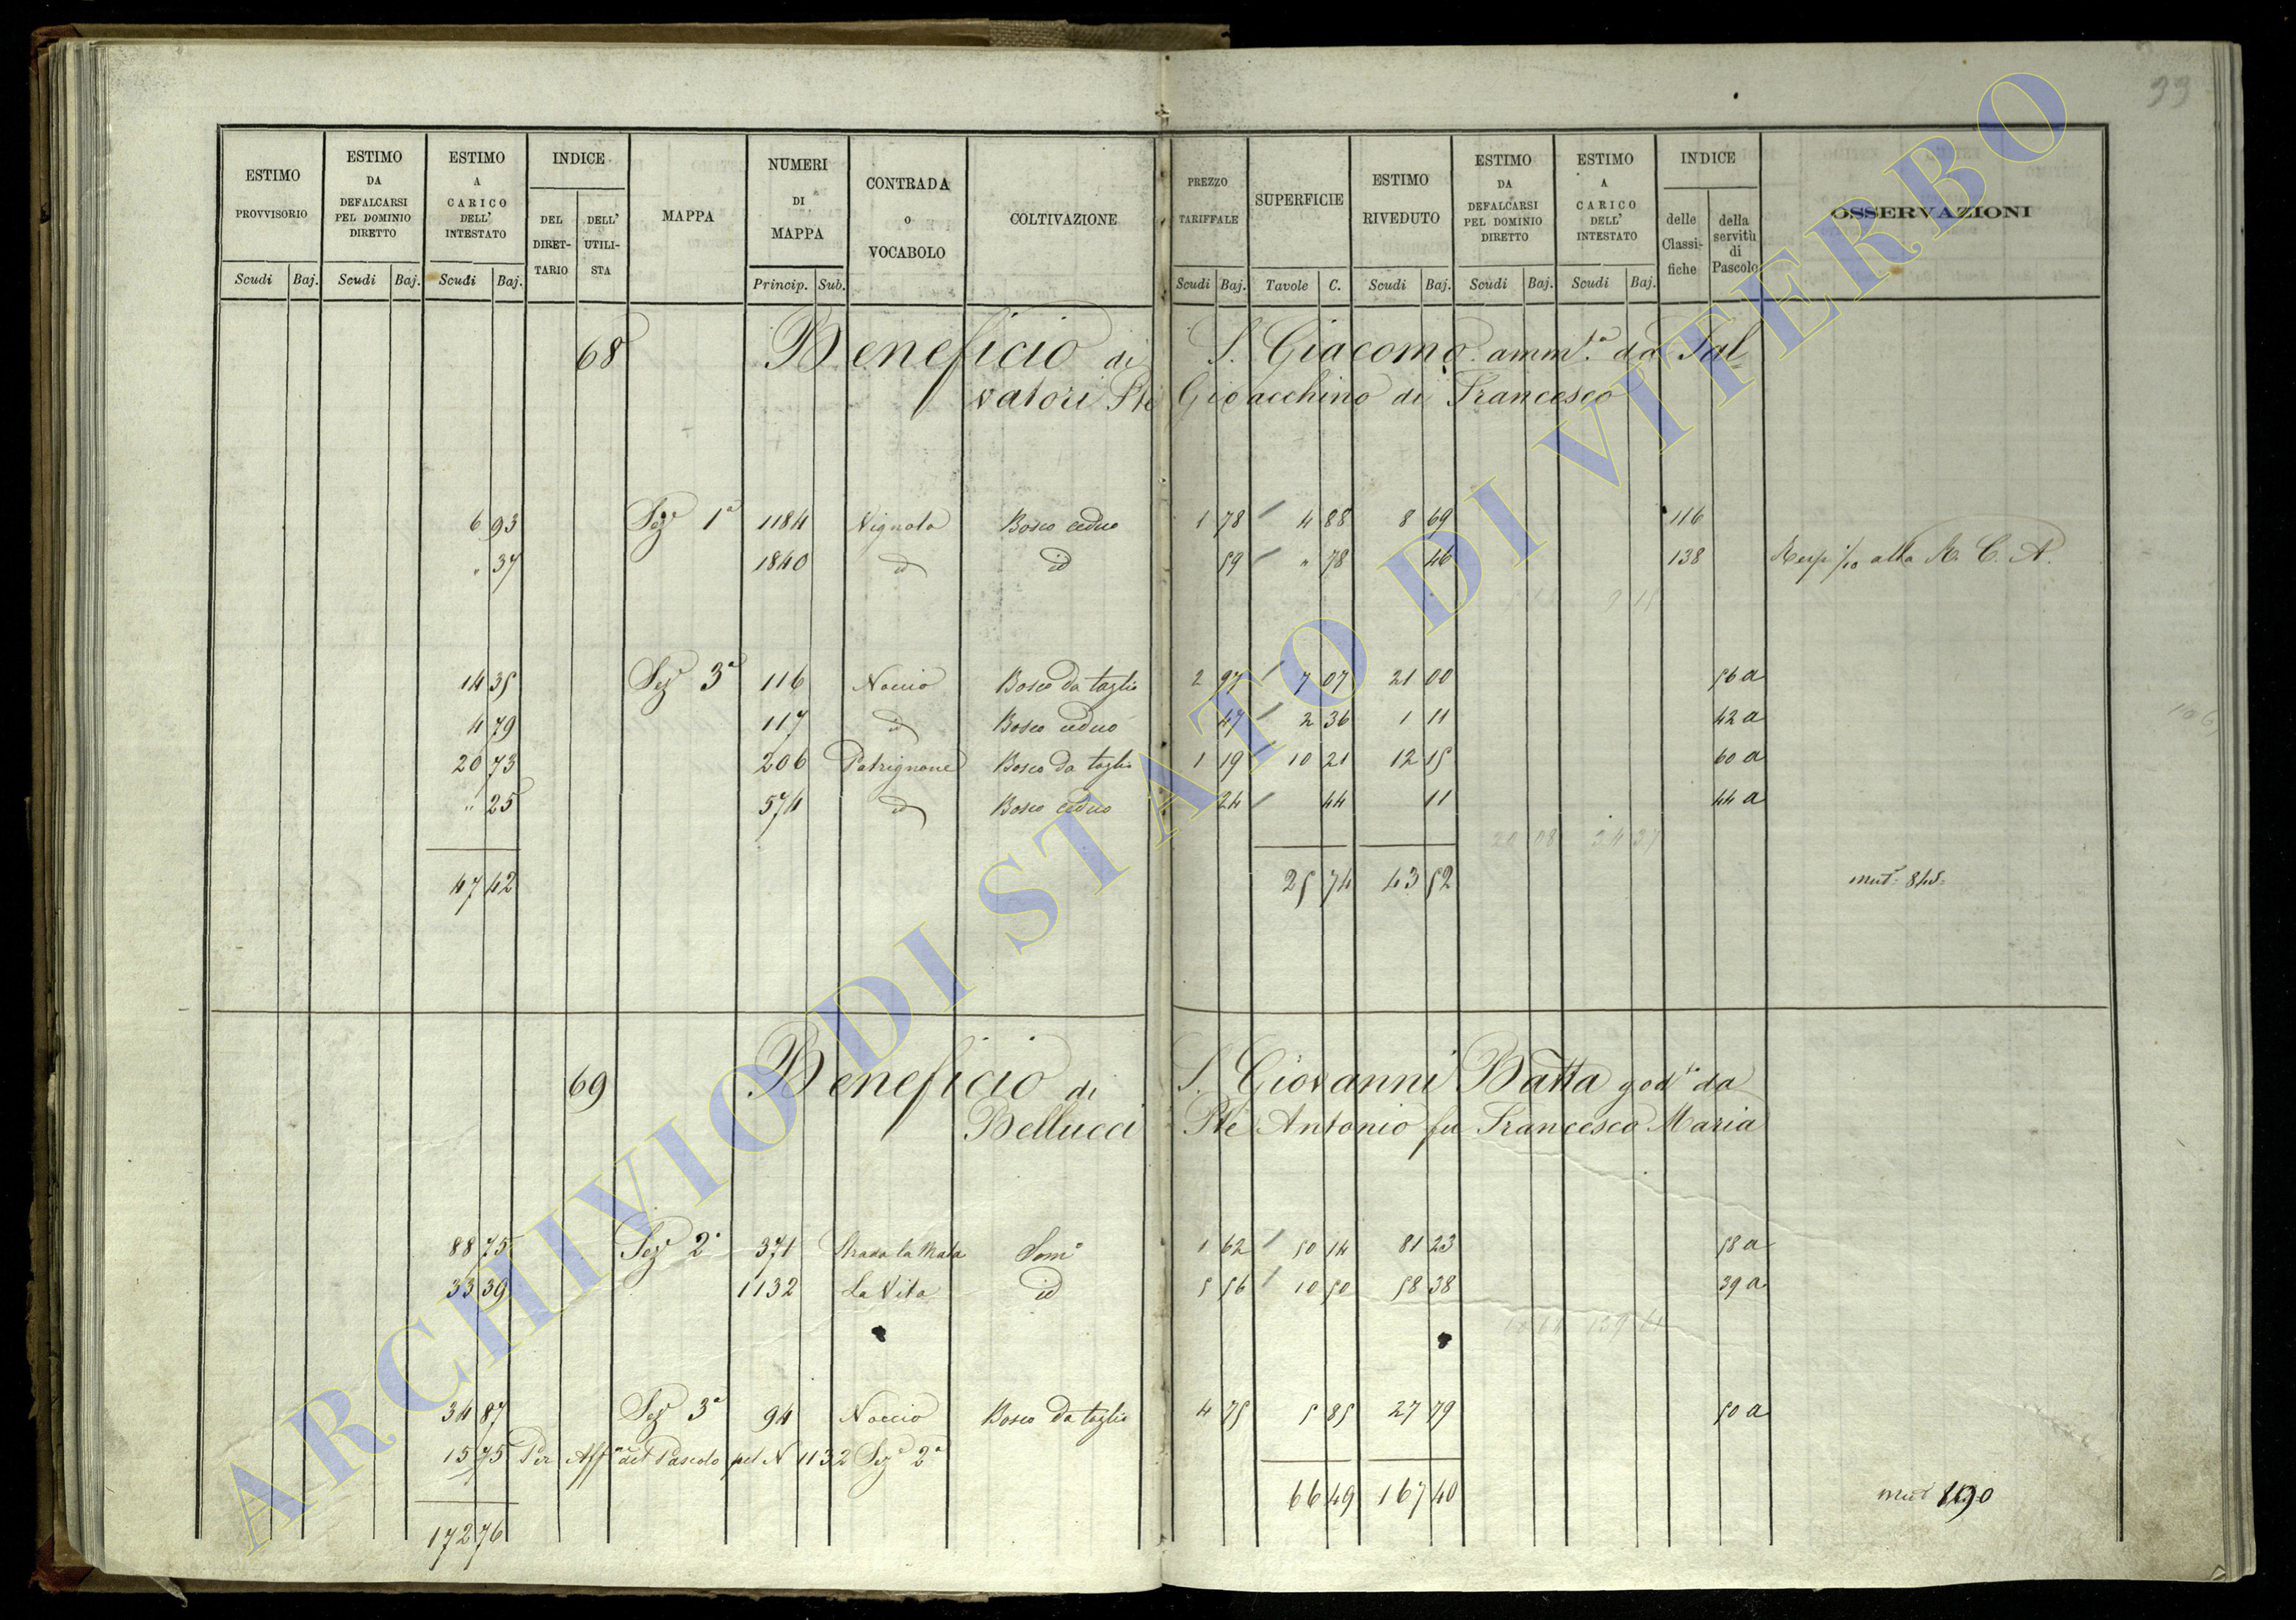 33
ESTIMO PROVVISORIO Scudi Baj.
ESTIMO DA DEFALCARSI PEL DOMINIO DIRETTO Scudi Baj.
ESTIMO A CARICO DELL' INTESTATO Scudi Baj.
INDICE DEL DIRET-TARIO DELL' UTILI-STA
MAPPA
NUMERI DI MAPPA Princip. Sub.
CONTRADA o VOCABOLO
COLTIVAZIONE
PREZZO TARIFFALE Scudi Baj.
SUPERFICIE Tavole C.
ESTIMO RIVEDUTO Scudi Baj.
ESTIMO DA DEFALCARSI PEL DOMINIO DIRETTO Scudi Baj.
ESTIMO A CARICO DELL' INTESTATO Scudi Baj.
INDICE delle Classi-fiche della servitù di Pascolo
OSSERVAZIONI
68 Beneficio di S. Giacomo amm.ta da Sal=
vatori Gioacchino di Francesco
6 93 Sez.e 1a 1184 Vignola Bosco ceduo 1 78 4 88 8 69 116
" 37 1840 id id 59 " 78 46 138 alla R. C. A.
14 35 Sez.e 3a 116 Noccio Bosco da taglio 2 97 7 07 21 00 56 a
4 79 117 id Bosco ceduo 47 2 36 1 11 42 a
20 73 206 Patrignone Bosco da taglio 1 19 10 21 12 15 60 a
" 25 574 id Bosco ceduo 24 44 11 44 a
47 42 25 74 43 52 mut.e 845
69 Beneficio di S. Giovanni Batta god.to da
Bellucci Pte Antonio fu Francesco Maria
88 75 Sez.e 2a 371 Strada la Mala Som.o 1 62 50 14 81 23 58 a
33 39 1132 La Vita id 5 56 10 50 58 38 39 a
34 87 Sez.e 3a 94 Noccio Bosco da taglio 4 75 5 85 27 79 50 a
15 75 Per Aff.ne del Pascolo pel N 1132 Sez.e 2a
172 76 66 49 167 40 mut
ARCHIVIO DI STATO DI VITERBO